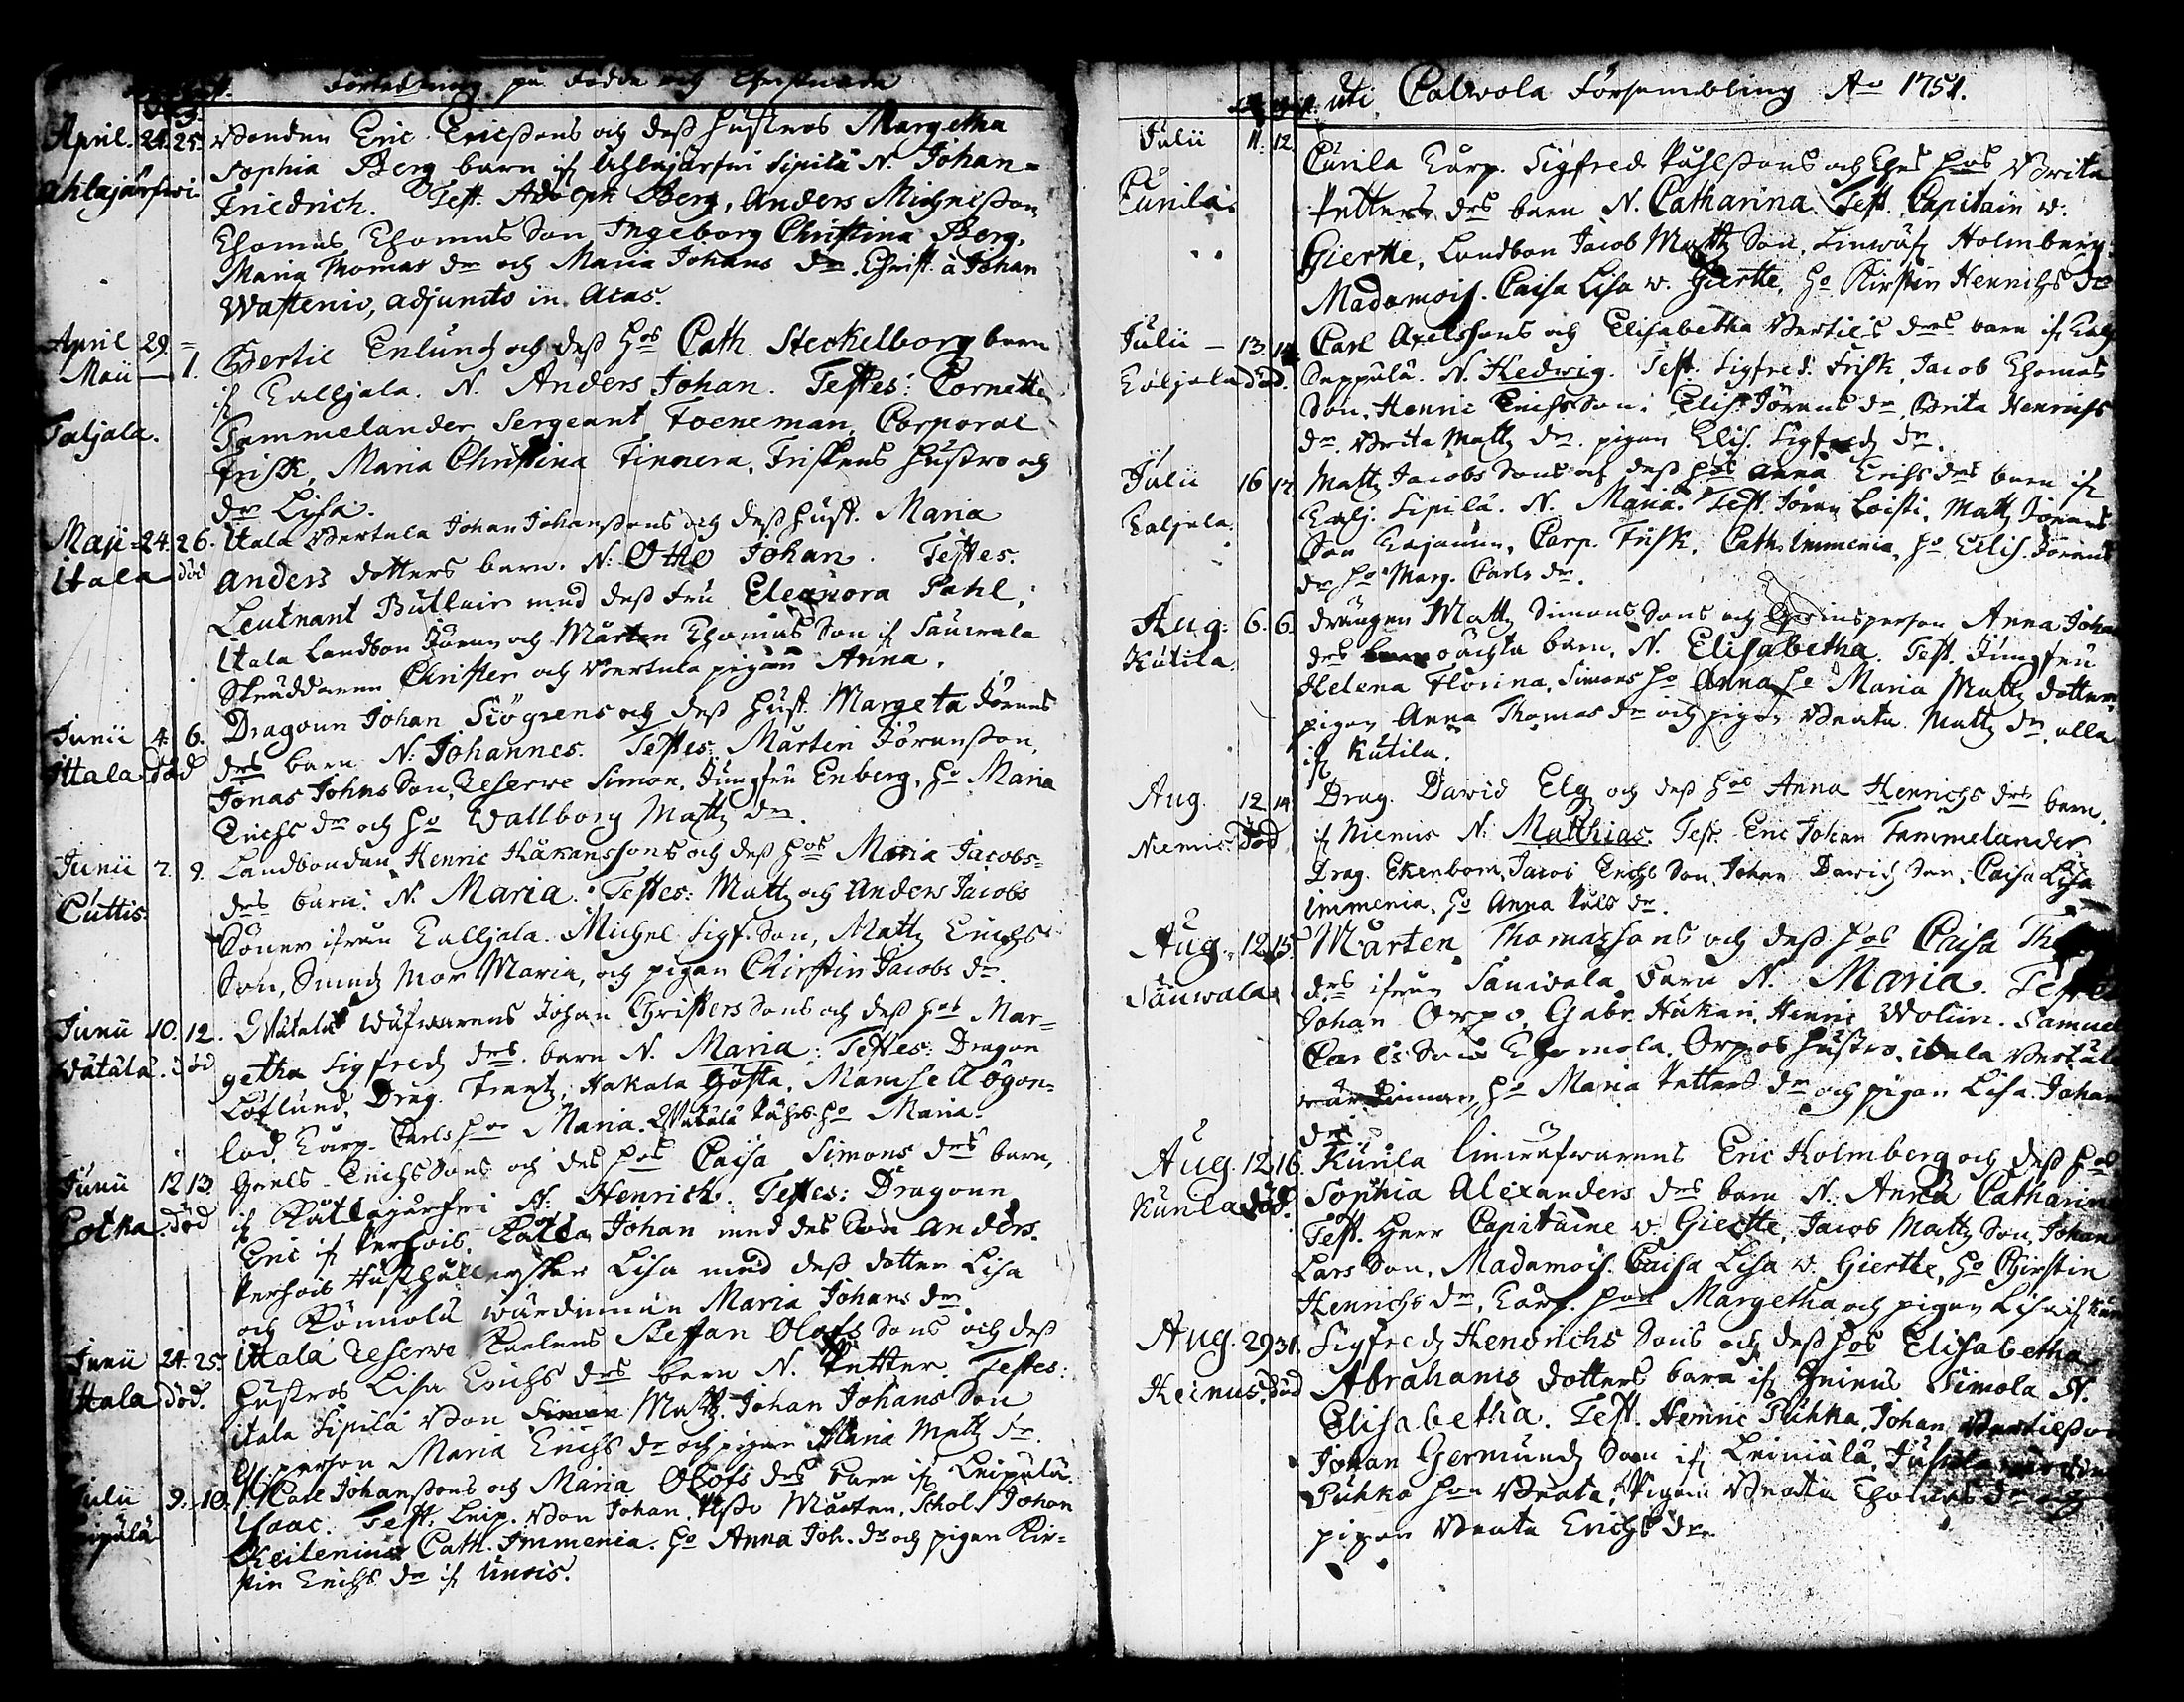 Förtekning på Födde och Christnade
April. 24. 25. Bonden Eric Ericssons och dess hustros Margetha
Ahlajärfwi Sophia Berg barn if Ahlajärfwi Sipilä N. Johan=
Friedrich. Test. Adolph Berg, Anders Michelsson,
Thomas Thomas Son Ingeborg Christina Berg,
Maria Thomas dr och Maria Johans dr. Christ. a Johan
Wastenio, adjuncto in Acas.
April 29. = Bertil Enlund och dess hos Cath. Steckelborg barn
Maii — 1. if Talljala. N. Anders Johan. Testes: Cornette
Taljala. Tammelander Sergeant Foeneman, Corporal
Frisk, Maria Christina Finnera, Friskens hustro och
dr Lisa.
Maji = 24. 26. Itala Bertula Johan Johanssons och dess hust. Maria
Itala död Anders dotters barn. N. Otho Johan. Testes.
Leutnant Butlair med dess fru Eleanora Pahl,
Itala Landbon Jören och Mårten Thomas Son if Sauwala
Skräddaren Christer och Bertula pigan Anna.
Junii 4. 6. Dragoun Johan Siögrens och dess hust. Margeta Jörens
Ittala död drs barn N. Johannes. Testes: Mårten Jöransson,
Jonas Johns Son, Reserwe Simon, Jungfru Enberg, ho Maria
Erichs dr och ho Wallborg Matts dr.
Junii 7. 9. Landbondan Henric Håkanssons och dess hos Maria Jacobs=
Cuttis. drs barn. N. Maria. Testes: Matts och Anders Jacobs
Söner ifrån Talljala. Michel Sigf. Son, Matts Erichs
Son, Smeds mor Maria, och pigan Chirstin Jacobs dr.
Junii 10. 12. Wätälä Wäfwarens Johan Christers Sons och dess hos Mar=
Wätälä. död getha Sigfreds drs. barn N. Maria: Testes: Dragon
Löflund, Drag. Frantz, Hakala Gösta, Mamsell Ögon=
lod, Torp. Carls hor Maria. Wätälä Påhls ho Maria.
Junii 12 13 Grels Erichs Sons och des hos Caisa Simons drs barn,
Potka. död if Kätlajärfwi N. Henrich. Testes: Dragoun
Eric if Perhois. Johan med des Son Anders.
Perhois Hushållerskan Lisa med dess dotter Lisa
och Könnölä wärdinnan Maria Johans dr.
Junii 24. 25. Ittala Reserwe Karlens Stefan Olofs Sons och dess
Ittala död. hustros Lisa Erichs drs barn N. Petter. Testes:
itala Sipilä Bon Simon Matts. Johan Johans Son
person Maria Erichs dr och pigan Maria Matts dr.
Julii 9. 10. Karl Johanssons och Maria Olofs drs barn if Leipälä.
Isaac. Test. Leip. Bon Johan. Mårten, Schol. Johan
Keilenius Cath. Immenia. ho Anna Joh. dr och pigan Kir=
stin Erichs dr if Unois.
uti Calwola Försambling Ao 1751.
Julii 11. 12. Cunila Torp. Sigfred Påhlssons och hos Brita
Cunila Petters drs barn N. Catharina. Test. Capitain v.
Giertte, Landbon Jacob Matts Son, Linwäf. Holmberg.
Madamois. Caisa Lisa v. Giertte, ho Kirstin Henrichs dr
Julii — 13. 14. Carl Axelssons och Elisabetha Bertils drs barn if Talj.
Taljala död. Seppälä. N. Hedwig. Test. Sigfred. Frisk, Jacob Thomas
Son, Henric Erichs Son. Elis. Jörens dr, Brita Henrichs
dr. Brita Matts dr. pigan Elis. Sigfreds dr.
Julii 16 17. Matts Jacobs Sons och dess hos Anna Erichs drs barn if
Taljala. Talj. Sipilä. N. Maria. Test. Jören Loisti. Matts Jörens
Son, Corp. Frisk. Cath. Immenia, ho Elis. Jörens
dr ho Marg. Carls dr.
Aug: 6. 6. drängen Matts Simons Sons och Qwinsperson Anna Johans
Kutila. drs oächta barn. N. Elisabetha. Test. Jungfru
Helena Florina, Simons ho Anna, ho Maria Matts dotter,
pigan Anna Thomas dr och pigan Beata Matts dr. alla
if Kutila.
Aug. 12 14 Drag. David Elg och dess hos Anna Henrichs drs barn.
Niemis död if Niemis N. Matthias. Test. Eric Johan Tammelander
Drag. Ekenbom, Jacob Erichs Son, Johan Dawids Son, Caisa Lisa
Immenia. ho Anna Påls dr.
Aug. 12 15. Mårten Thomassons och dess hos Caisa
Sauwala drs ifrån Sauwala barn N. Maria. Testes
Johan Orpo, Gabr. Håkan, Henric Wolin. Samuel
Carls Son Thomola, Orpos hustro, itala Bertula
ho Maria Petters dr och pigan Lisa Johans
dr.
Aug. 12 16. Kunila linwäfwarens Eric Holmberg och dess hos
Kunila död. Sophia Alexanders drs barn N. Anna Catharina
Test. Herr Capitaine v. Giertte, Jacob Matts Son, Johan
Lars Son, Madamois. Caisa Lisa v. Giertte, ho Chirstin
Henrichs dr, Torp. hon Margetha och pigan Lisa if
Aug. 29 31. Sigfreds Hendrichs Sons och dess hos Elisabetha
Heinus. död Abrahams dotters barn if Heinus Simola N.
Elisabetha. Test. Henric Puhka, Johan Bertilsson
Johan Germunds Son if Leiniälä, Jussila
Puhka hon Beata, Pigan Beata Thomas dr och
pigan Beata Erichs dr